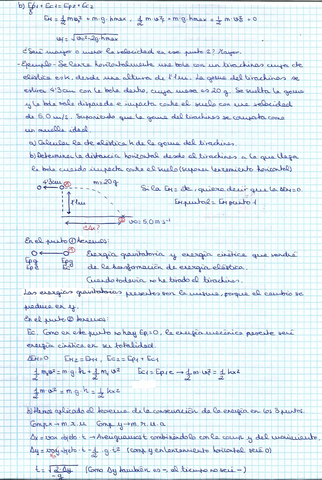 b) Ep1 + Ec1 = Ep2 + Ec2
vH = √vo²-2g·hmax
¿Será mayor o menor la velocidad en ese punto 2? Mayor.
- Ejemplo - Se lanza horizontalmente una bola con un tirachinas cuya cte
elástica es k, desde una altura de 1'1m. La goma del tirachinas se
estira 4'3cm con la bola dentro, cuya masa es 20 g. Se suelta la goma
y la bola sale disparada e impacta contra el suelo con una velocidad
de 5,0 m/s. Suponiendo que la goma del tirachinas se comporta como
un muelle ideal
a) Calcular la cte elástica k de la goma del tirachinas.
b) Determine la distancia horizontal desde el tirachinas a la que llega
la bola cuando impacta contra el suelo (supone lanzamiento horizontal)
4'3cm
m=20g
Si la EM = cte, quiere decir que la ΔEM=0
1'1m
v=5,0 m s-1
¿Δx?
En el punto ① tenemos:
Energía gravitatoria y energía cinética que vendrá
de la transformación de energía elástica.
Cuando todavía no he tirado el tirachinas.
Las energías gravitatorias presentes son la misma, porque el cambio se
produce en y.
En el punto ② tenemos:
Ec. Como en este punto no hay Ep=0, la energía mecánica presente será
energía cinética en su totalidad.
ΔEM=0 EM2 = EM1, Ec2 = Ep1 + Ec1
½ m v² = m·g·h + ½ m v² Ec1 = Ep1e → ½ m v² = ½ k x²
½ m v² = m·g·h + ½ k x²
b) Hemos aplicado el teorema de la conservación de la energía en los 2 puntos.
Comp x → m.r.u Comp y → m.r.u.a
t = √2·Δy / -g (Como Δy también es -, el tiempo no será -)